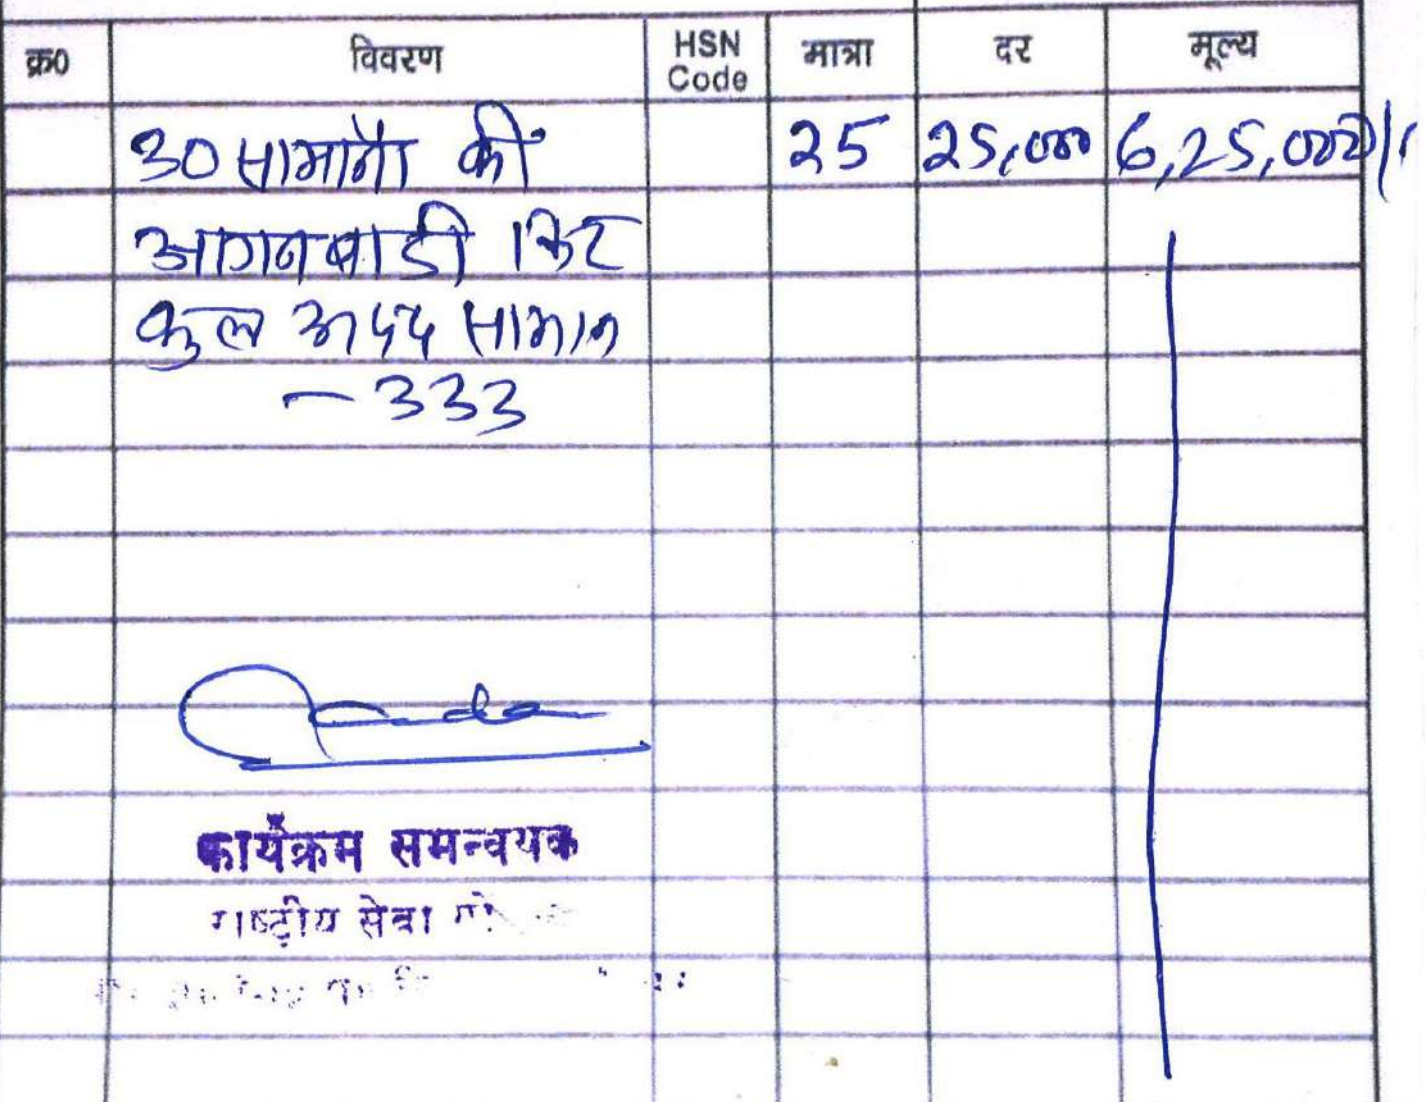 क्र0 विवरण HSN Code मात्रा दर मूल्य
30 सामानों की 25 25,000 6,25,000/
आगनबाडी किट
कुल अदद सामान
- 333
कार्यक्रम समन्वयक
राष्ट्रीय सेवा